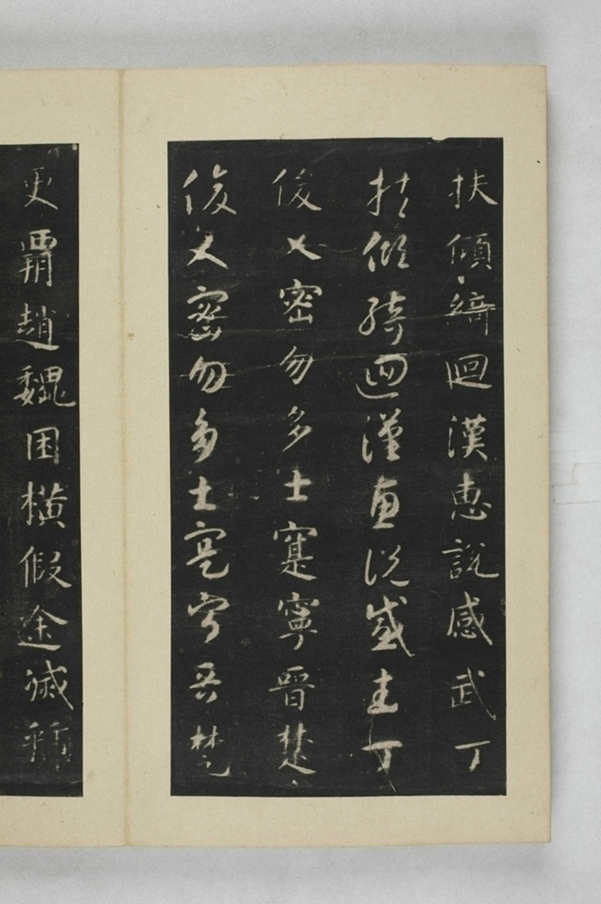 扶傾綺迴漢惠說感武丁
扶傾綺迴漢惠說感武丁
俊乂密勿多士寔寧晉楚
俊乂密勿多士寔寧晉楚
更霸趙魏困橫假途滅虢